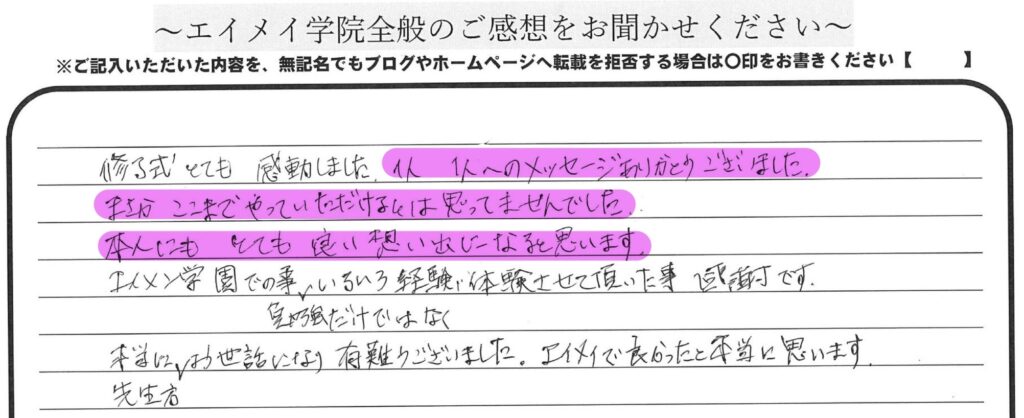 ～エイメイ学院全般のご感想をお聞かせください～
※ご記入いただいた内容を、無記名でもブログやホームページへ転載を拒否する場合は〇印をお書きください【　　】
修了式とても 感動しました。1人 1人へのメッセージありがとうございました。
まさか ここまでやっていただけるとは思ってませんでした。
本人にも とても良い想い出になると思います。
エイメン学園での事、いろいろ経験、体験させて頂いた事 感謝です。
勉強だけではなく
本当にお世話になり 有難うございました。エイメイで良かったと本当に思います。
先生方